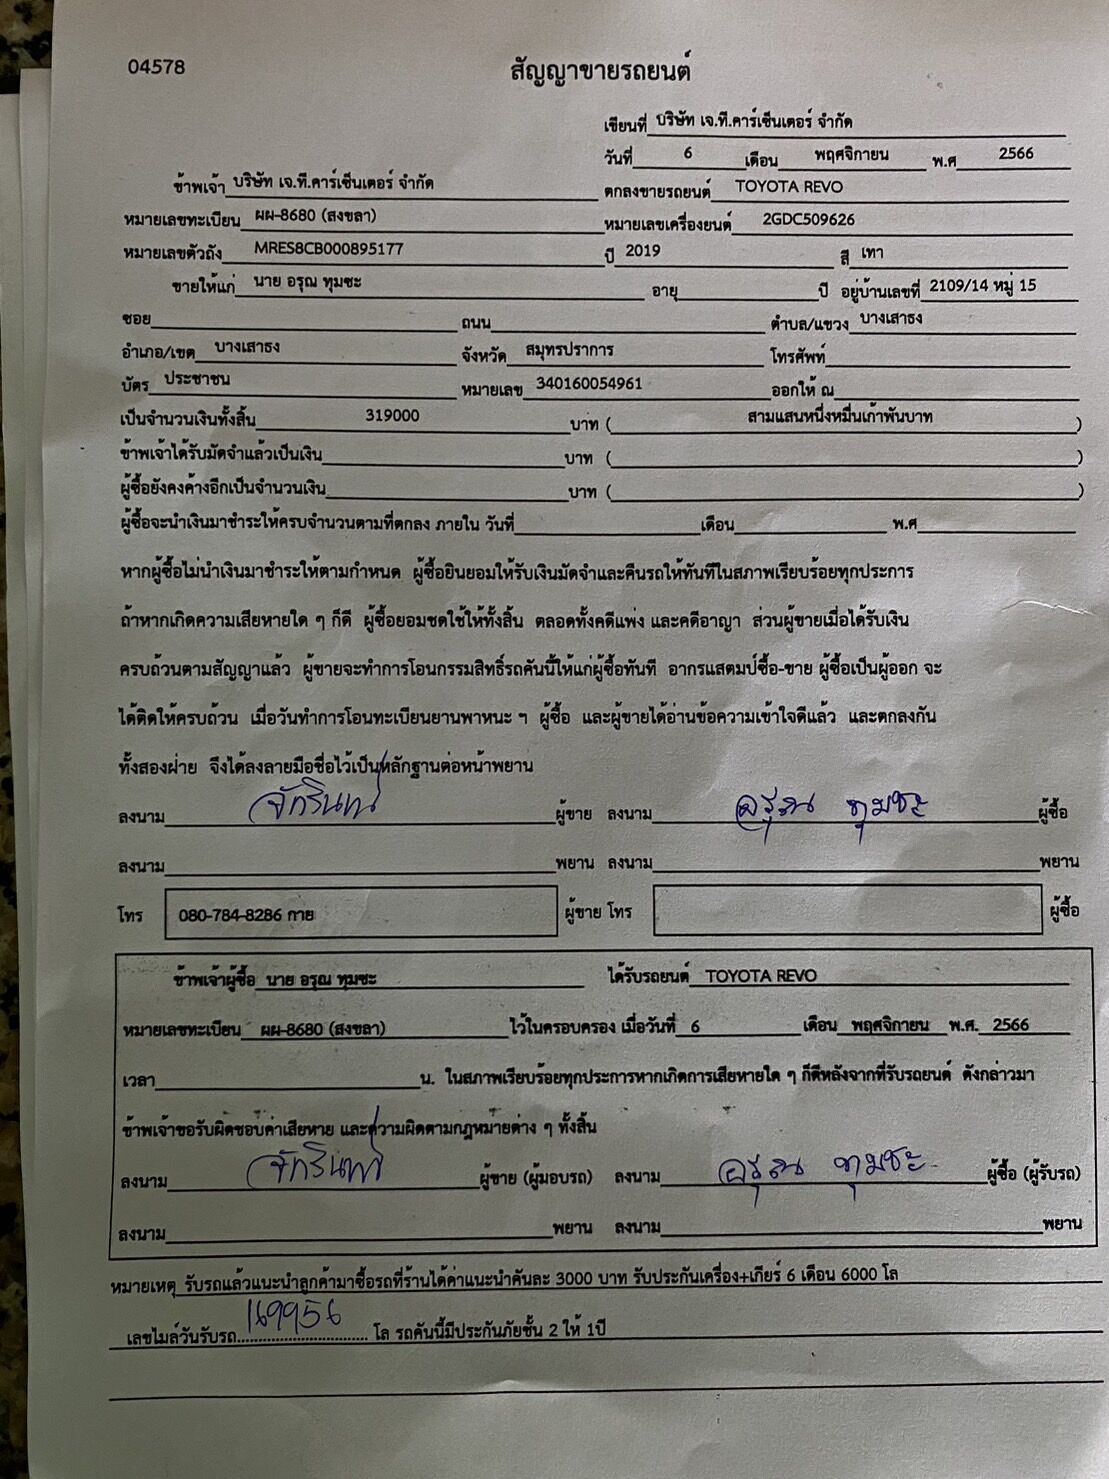 04578
สัญญาขายรถยนต์
เขียนที่ บริษัท เจ.ที.คาร์เซ็นเตอร์ จำกัด
วันที่ 6 เดือน พฤศจิกายน พ.ศ 2566
ข้าพเจ้า บริษัท เจ.ที.คาร์เซ็นเตอร์ จำกัด ตกลงขายรถยนต์ TOYOTA REVO
หมายเลขทะเบียน ผผ-8680 (สงขลา) หมายเลขเครื่องยนต์ 2GDC509626
หมายเลขตัวถัง MRES8CB000895177 ปี 2019 สี เทา
ขายให้แก่ นาย อรุณ ทุมซะ อายุ ปี อยู่บ้านเลขที่ 2109/14 หมู่ 15
ซอย ถนน ตำบล/แขวง บางเสาธง
อำเภอ/เขต บางเสาธง จังหวัด สมุทรปราการ โทรศัพท์
บัตร ประชาชน หมายเลข 340160054961 ออกให้ ณ
เป็นจำนวนเงินทั้งสิ้น 319000 บาท ( สามแสนหนึ่งหมื่นเก้าพันบาท )
ข้าพเจ้าได้รับมัดจำแล้วเป็นเงิน บาท ( )
ผู้ซื้อยังคงค้างอีกเป็นจำนวนเงิน บาท ( )
ผู้ซื้อจะนำเงินมาชำระให้ครบจำนวนตามที่ตกลง ภายใน วันที่ เดือน พ.ศ
หากผู้ซื้อไม่นำเงินมาชำระให้ตามกำหนด ผู้ซื้อยินยอมให้รับเงินมัดจำและคืนรถให้ทันทีในสภาพเรียบร้อยทุกประการ
ถ้าหากเกิดความเสียหายใด ๆ ก็ดี ผู้ซื้อยอมชดใช้ให้ทั้งสิ้น ตลอดทั้งคดีแพ่ง และคดีอาญา ส่วนผู้ขายเมื่อได้รับเงิน
ครบถ้วนตามสัญญาแล้ว ผู้ขายจะทำการโอนกรรมสิทธิ์รถคันนี้ให้แก่ผู้ซื้อทันที อากรแสตมป์ซื้อ-ขาย ผู้ซื้อเป็นผู้ออก จะ
ได้ติดให้ครบถ้วน เมื่อวันทำการโอนทะเบียนยานพาหนะ ฯ ผู้ซื้อ และผู้ขายได้อ่านข้อความเข้าใจดีแล้ว และตกลงกัน
ทั้งสองฝ่าย จึงได้ลงลายมือชื่อไว้เป็นหลักฐานต่อหน้าพยาน
ลงนาม จักรินทร์ ผู้ขาย ลงนาม อรุณ ทุมซะ ผู้ซื้อ
ลงนาม พยาน ลงนาม พยาน
โทร 080-784-8286 กาย ผู้ขาย โทร ผู้ซื้อ
ข้าพเจ้าผู้ซื้อ นาย อรุณ ทุมซะ ได้รับรถยนต์ TOYOTA REVO
หมายเลขทะเบียน ผผ-8680 (สงขลา) ไว้ในครอบครอง เมื่อวันที่ 6 เดือน พฤศจิกายน พ.ศ. 2566
เวลา น. ในสภาพเรียบร้อยทุกประการหากเกิดการเสียหายใด ๆ ก็ดีหลังจากที่รับรถยนต์ ดังกล่าวมา
ข้าพเจ้าขอรับผิดชอบค่าเสียหาย และความผิดตามกฎหมายต่าง ๆ ทั้งสิ้น
ลงนาม จักรินทร์ ผู้ขาย (ผู้มอบรถ) ลงนาม อรุณ ทุมซะ ผู้ซื้อ (ผู้รับรถ)
ลงนาม พยาน ลงนาม พยาน
หมายเหตุ รับรถแล้วแนะนำลูกค้ามาซื้อรถที่ร้านได้ค่าแนะนำคันละ 3000 บาท รับประกันเครื่อง+เกียร์ 6 เดือน 6000 โล
เลขไมล์วันรับรถ 169956 โล รถคันนี้มีประกันภัยชั้น 2 ให้ 1ปี